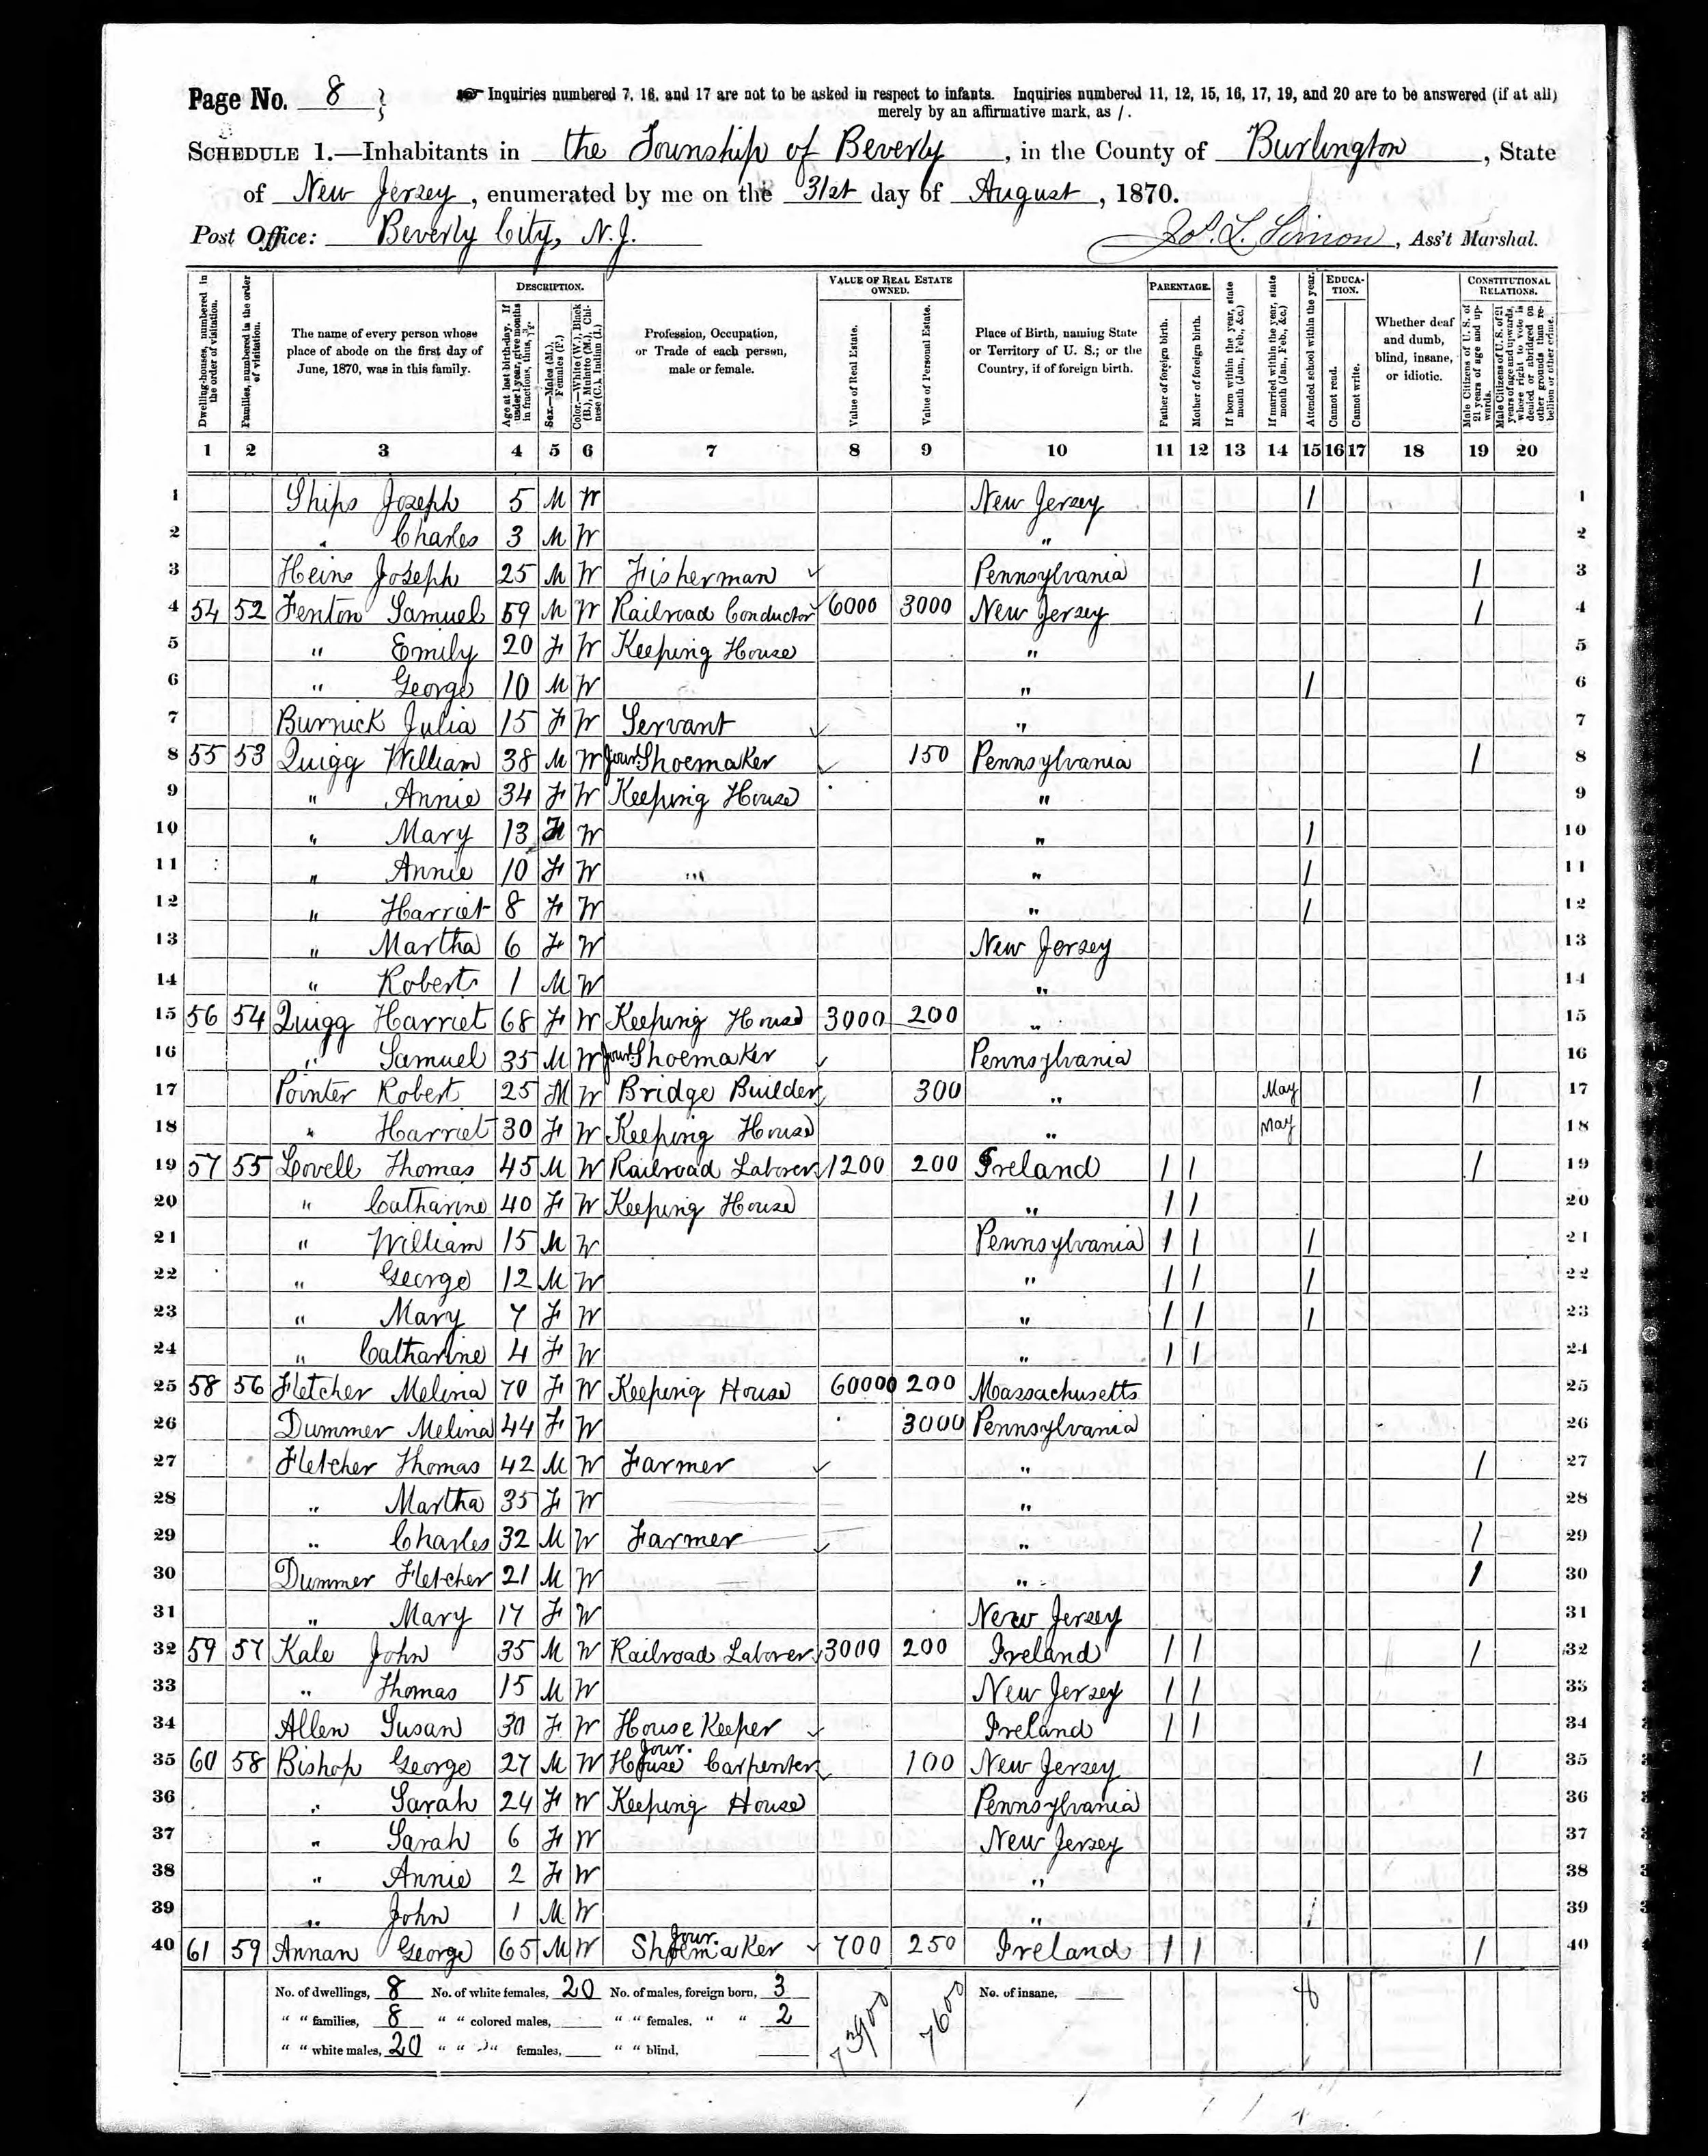 Page No. 8
Inquiries numbered 7, 16, and 17 are not to be asked in respect to infants. Inquiries numbered 11, 12, 15, 16, 17, 19, and 20 are to be answered (if at all)
merely by an affirmative mark, as /.
SCHEDULE 1.—Inhabitants in the Township of Beverly, in the County of Burlington, State
of New Jersey, enumerated by me on the 31st day of August, 1870.
Post Office: Beverly City, N.J. Jos. L. Simon, Ass't Marshal.
Dwelling-houses, numbered in the order of visitation.
Families, numbered in the order of visitation.
The name of every person whose place of abode on the first day of June, 1870, was in this family.
DESCRIPTION.
Age at last birth-day. If under 1 year, give months in fractions, thus, 3/12.
Sex.—Males (M.), Females (F.)
Color.—White (W.), Black (B.), Mulatto (M.), Chinese (C.), Indian (I.)
Profession, Occupation, or Trade of each person, male or female.
VALUE OF REAL ESTATE OWNED.
Value of Real Estate.
Value of Personal Estate.
Place of Birth, naming State or Territory of U. S.; or the Country, if of foreign birth.
PARENTAGE.
Father of foreign birth.
Mother of foreign birth.
If born within the year, state month (Jan., Feb., &c.)
If married within the year, state month (Jan., Feb., &c.)
Attended school within the year.
EDUCATION.
Cannot read.
Cannot write.
Whether deaf and dumb, blind, insane, or idiotic.
CONSTITUTIONAL RELATIONS.
Male Citizens of U. S. of 21 years of age and upwards.
Male Citizens of U. S. of 21 years of age and upwards, whose right to vote is denied or abridged on other grounds than rebellion or other crime.
1 2 3 4 5 6 7 8 9 10 11 12 13 14 15 16 17 18 19 20
1 Ships Joseph 5 M W New Jersey / 1
2 " Charles 3 M W " 2
3 Heins Joseph 25 M W Fisherman ✓ Pennsylvania / 3
4 54 52 Fenton Samuel 59 M W Railroad Conductor ✓ 6000 3000 New Jersey / 4
5 " Emily 20 F W Keeping House " 5
6 " George 10 M W " / 6
7 Burnick Julia 15 F W Servant ✓ " 7
8 55 53 Quigg William 38 M W Jour Shoemaker ✓ 150 Pennsylvania / 8
9 " Annie 34 F W Keeping House " 9
10 " Mary 13 F W " / 10
11 " Annie 10 F W " / 11
12 " Harriet 8 F W " / 12
13 " Martha 6 F W New Jersey 13
14 " Robert 1 M W " 14
15 56 54 Quigg Harriet 68 F W Keeping House 3000 200 " 15
16 " Samuel 35 M W Jour Shoemaker ✓ Pennsylvania 16
17 Pointer Robert 25 M W Bridge Builder ✓ 300 " May / 17
18 " Harriet 30 F W Keeping House " May 18
19 57 55 Lovell Thomas 45 M W Railroad Laborer ✓ 1200 200 Ireland / / / 19
20 " Catharine 40 F W Keeping House " / / 20
21 " William 15 M W Pennsylvania / / / 21
22 " George 12 M W " / / / 22
23 " Mary 7 F W " / / / 23
24 " Catharine 4 F W " / / 24
25 58 56 Fletcher Melina 70 F W Keeping House 60000 200 Massachusetts 25
26 Dummer Melina 44 F W 3000 Pennsylvania 26
27 Fletcher Thomas 42 M W Farmer ✓ " / 27
28 " Martha 35 F W " 28
29 " Charles 32 M W Farmer ✓ " / 29
30 Dummer Fletcher 21 M W " / 30
31 " Mary 17 F W New Jersey 31
32 59 57 Kale John 35 M W Railroad Laborer ✓ 3000 200 Ireland / / / 32
33 " Thomas 15 M W New Jersey / / 33
34 Allen Susan 30 F W House Keeper ✓ Ireland / / 34
35 60 58 Bishop George 27 M W Jour. House Carpenter ✓ 100 New Jersey / 35
36 " Sarah 24 F W Keeping House Pennsylvania 36
37 " Sarah 6 F W New Jersey 37
38 " Annie 2 F W " 38
39 " John 1 M W " / 39
40 61 59 Annan George 65 M W Jour. Shoemaker ✓ 700 250 Ireland / / / 40
No. of dwellings, 8 No. of white females, 20 No. of males, foreign born, 3 No. of insane,
" " families, 8 " " colored males, " " females, " " 2
" " white males, 20 " " " females, " " blind,
73900 7600 8